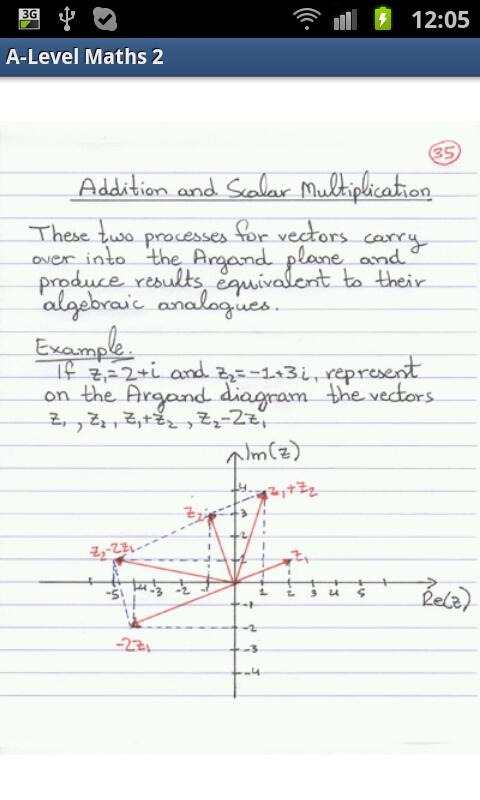 3G 12:05
A-Level Maths 2
35
Addition and Scalar Multiplication
These two processes for vectors carry
over into the Argand plane and
produce results equivalent to their
algebraic analogues.
Example.
If z₁=2+i and z₂=-1+3i, represent
on the Argand diagram the vectors
z₁, z₂, z₁+z₂, z₂-2z₁
Im(z)
4 z₁+z₂
z₂ 3
2
z₂-2z₁ 1 z₁
-5 -4 -3 -2 -1 1 2 3 4 5 Re(z)
-1
-2
-2z₁ -3
-4